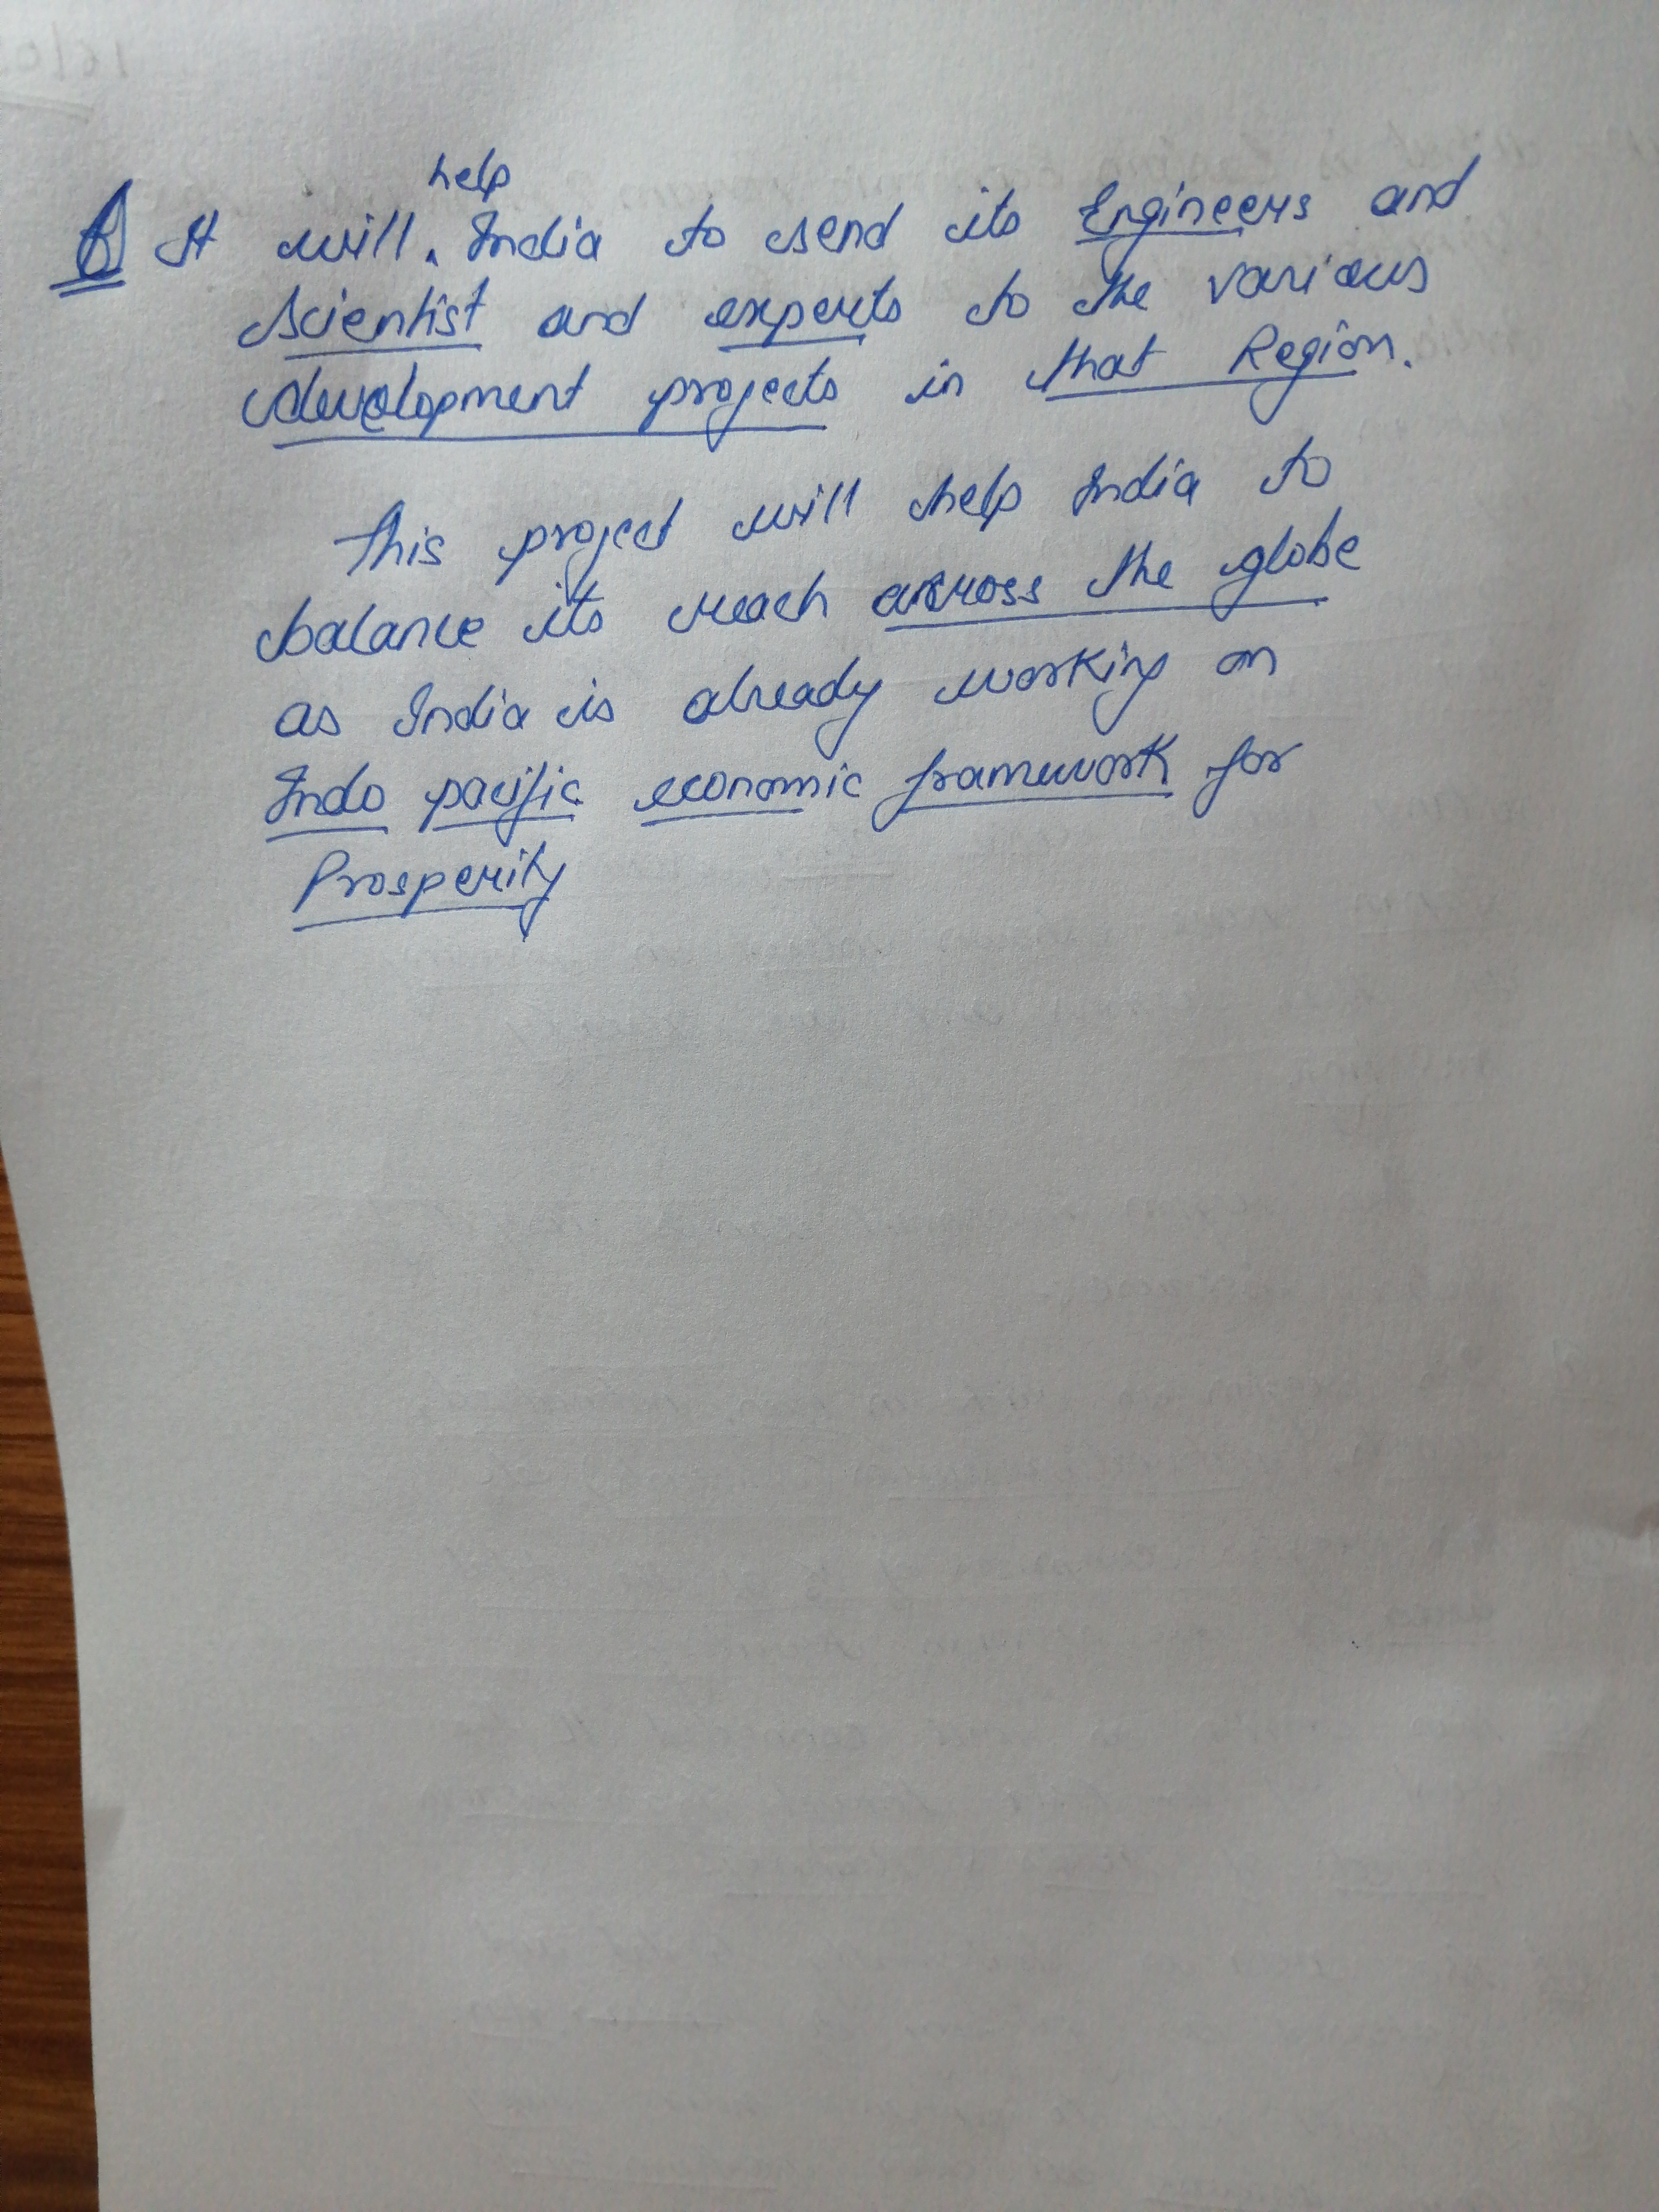 6 It will help India to send its Engineers and
scientist and experts to the various
development projects in that Region.
This project will help India to
balance its reach across the globe
as India is already working on
Indo pacific economic framework for
Prosperity